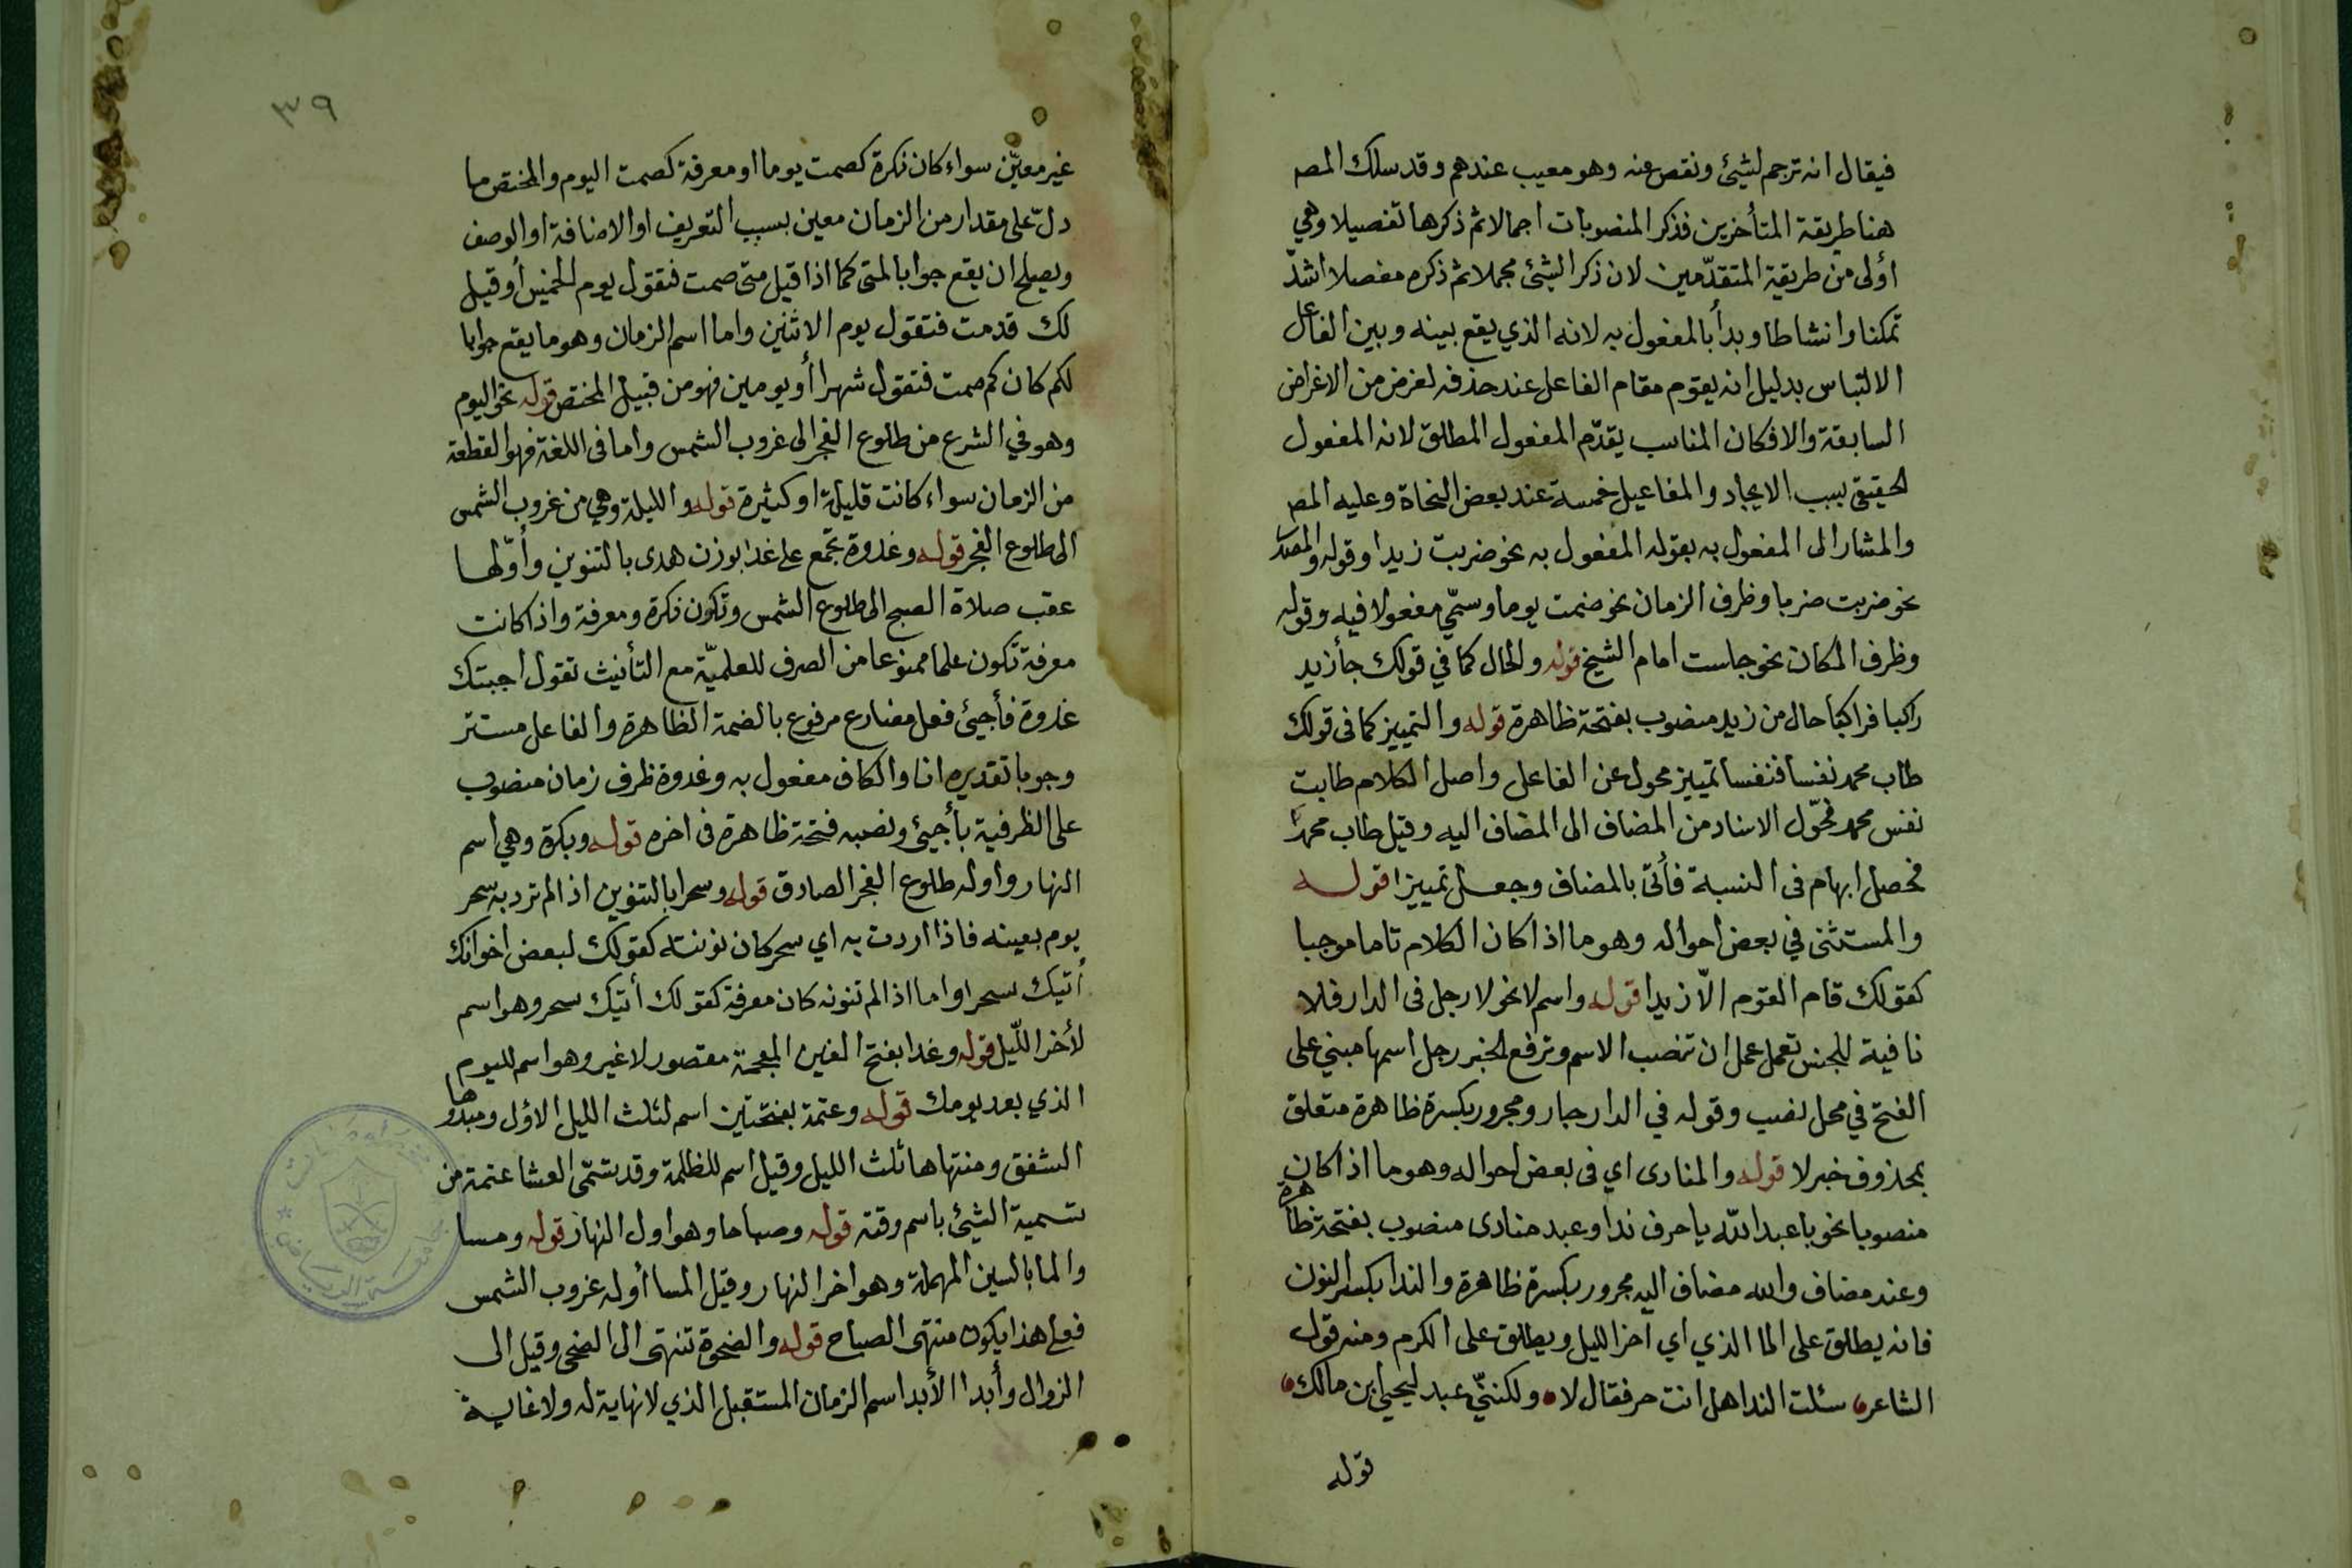 فيقال انه ترجم لشيئ ونقص عنه وهو معيب عندهم وقد سلك المص
هنا طريقة المتأخرين فذكر المنصوبات اجمالا ثم ذكرها تفصيلا وهي
أولى من طريقة المتقدّمين لان ذكر الشيئ مجملا ثم ذكره مفصلا اشدّ
تمكنا وانشاطا وبدأ بالمفعول به لانه الذي يقع بينه وبين الفاعل
الالتباس بدليل انه يقوم مقام الفاعل عند حذفه لغرض من الاغراض
السابقة والا فكان المناسب يقدّم المفعول المطلق لانه المفعول
الحقيقي بسبب الايجاد والمفاعيل خمسة عند بعض النحاة وعليه المص
والمشار الى المفعول به بقوله المفعول به نحو ضربت زيدا وقوله والمصدر
نحو ضربت ضربا وظرف الزمان نحو صمت يوما وسمّي مفعولا فيه وقوله
وظرف المكان نحو جلست امام الشيخ قوله والحال كما في قولك جأ زيد
راكبا فراكبا حال من زيد منصوب بفتحة ظاهرة قوله والتمييز كما فى قولك
طاب محمد نفسا فنفسا تمييز محول عن الفاعل واصل الكلام طابت
نفس محمد فحوّل الاسناد من المضاف الى المضاف اليه وقيل طاب محمد
فحصل ابهام فى النسبة فأتى بالمضاف وجعل تمييزا قوله
والمستثنى في بعض احواله وهو ما اذا كان الكلام تاما موجبا
كقولك قام القوم الّا زيدا قوله واسم لا نحو لا رجل فى الدار فلا
نافية للجنس تعمل عمل ان تنصب الاسم وترفع الخبر رجل اسمها مبني على
الفتح في محل نصب وقوله في الدار جار ومجرور بكسرة ظاهرة متعلق
بمحذوف خبر لا قوله والمنادى اي فى بعض احواله وهو ما اذا كان
منصوبا نحو يا عبد الله يا حرف ندا وعبد منادى منصوب بفتحة ظاهرة
وعند مضاف والله مضاف اليه مجرور بكسرة ظاهرة والندا بكسر النون
فانه يطلق على الما الذي اي اخر الليل ويطلق على الكرم ومنه قول
الشاعر سئلت الندا هل انت حر فقال لا ولكننيّ عبد ليحيى ابن مالك
قوله
٣٩
غير معيّن سواء كان نكرة كصمت يوما او معرفة كصمت اليوم والمختص ما
دلّ على مقدار من الزمان معين بسبب التعريف او الاضافة او الوصف
ويصلح ان يقع جوابا لمتى كما اذا قيل متى صمت فتقول يوم الخميس أو قيل
لك قدمت فتقول يوم الاثنين واما اسم الزمان وهو ما يقع جوابا
لكم كان كم صمت فتقول شهرا أو يومين فهو من قبيل المختص قوله نحو اليوم
وهو في الشرع من طلوع الفجر الى غروب الشمس واما فى اللغة فهو القطعة
من الزمان سواء كانت قليلة او كثيرة قوله والليلة وهي من غروب الشمس
الى طلوع الفجر قوله وغدوة تجمع على غدا بوزن هدى بالتنوين وأوّلها
عقب صلاة الصبح الى طلوع الشمس وتكون نكرة ومعرفة واذا كانت
معرفة تكون علما ممنوعا من الصرف للعلميّة مع التأنيث تقول اجيئك
غدوة فأجيئ فعل مضارع مرفوع بالضمة الظاهرة والفاعل مستتر
وجوبا تقديره انا والكاف مفعول به وغدوة ظرف زمان منصوب
على الظرفية بأجيئ ونصبه فتحة ظاهرة فى اخره قوله وبكرة وهي اسم
النهار واوله طلوع الفجر الصادق قوله وسحرا بالتنوين اذا لم ترد به سحر
يوم بعينه فاذا اردت به اي سحر كان نونته كقولك لبعض اخوانك
أتيك سحرا واما اذا لم تنونه كان معرفة كقولك أتيك سحر وهو اسم
لأخر اللّيل قوله وغدا بفتح الغين المعجمة مقصور لا غير وهو اسم لليوم
الذي بعد يومك قوله وعتمة بفتحتين اسم لثلث الليل الاول ومبدؤها
الشفق ومنتهاها ثلث الليل وقيل اسم للظلمة وقد تسمّى العشا عتمة من
تسمية الشيئ باسم وقته قوله وصباحا وهو اول النهار قوله ومسا
والما بالسين المهملة وهو اخر النهار وقيل المسا أوله غروب الشمس
فعلى هذا يكون منتهى الصباح قوله والضحوة تنتهى الى الضحى وقيل الى
الزوال وأبدا الأبد اسم الزمان المستقبل الذي لا نهاية له ولا غاية